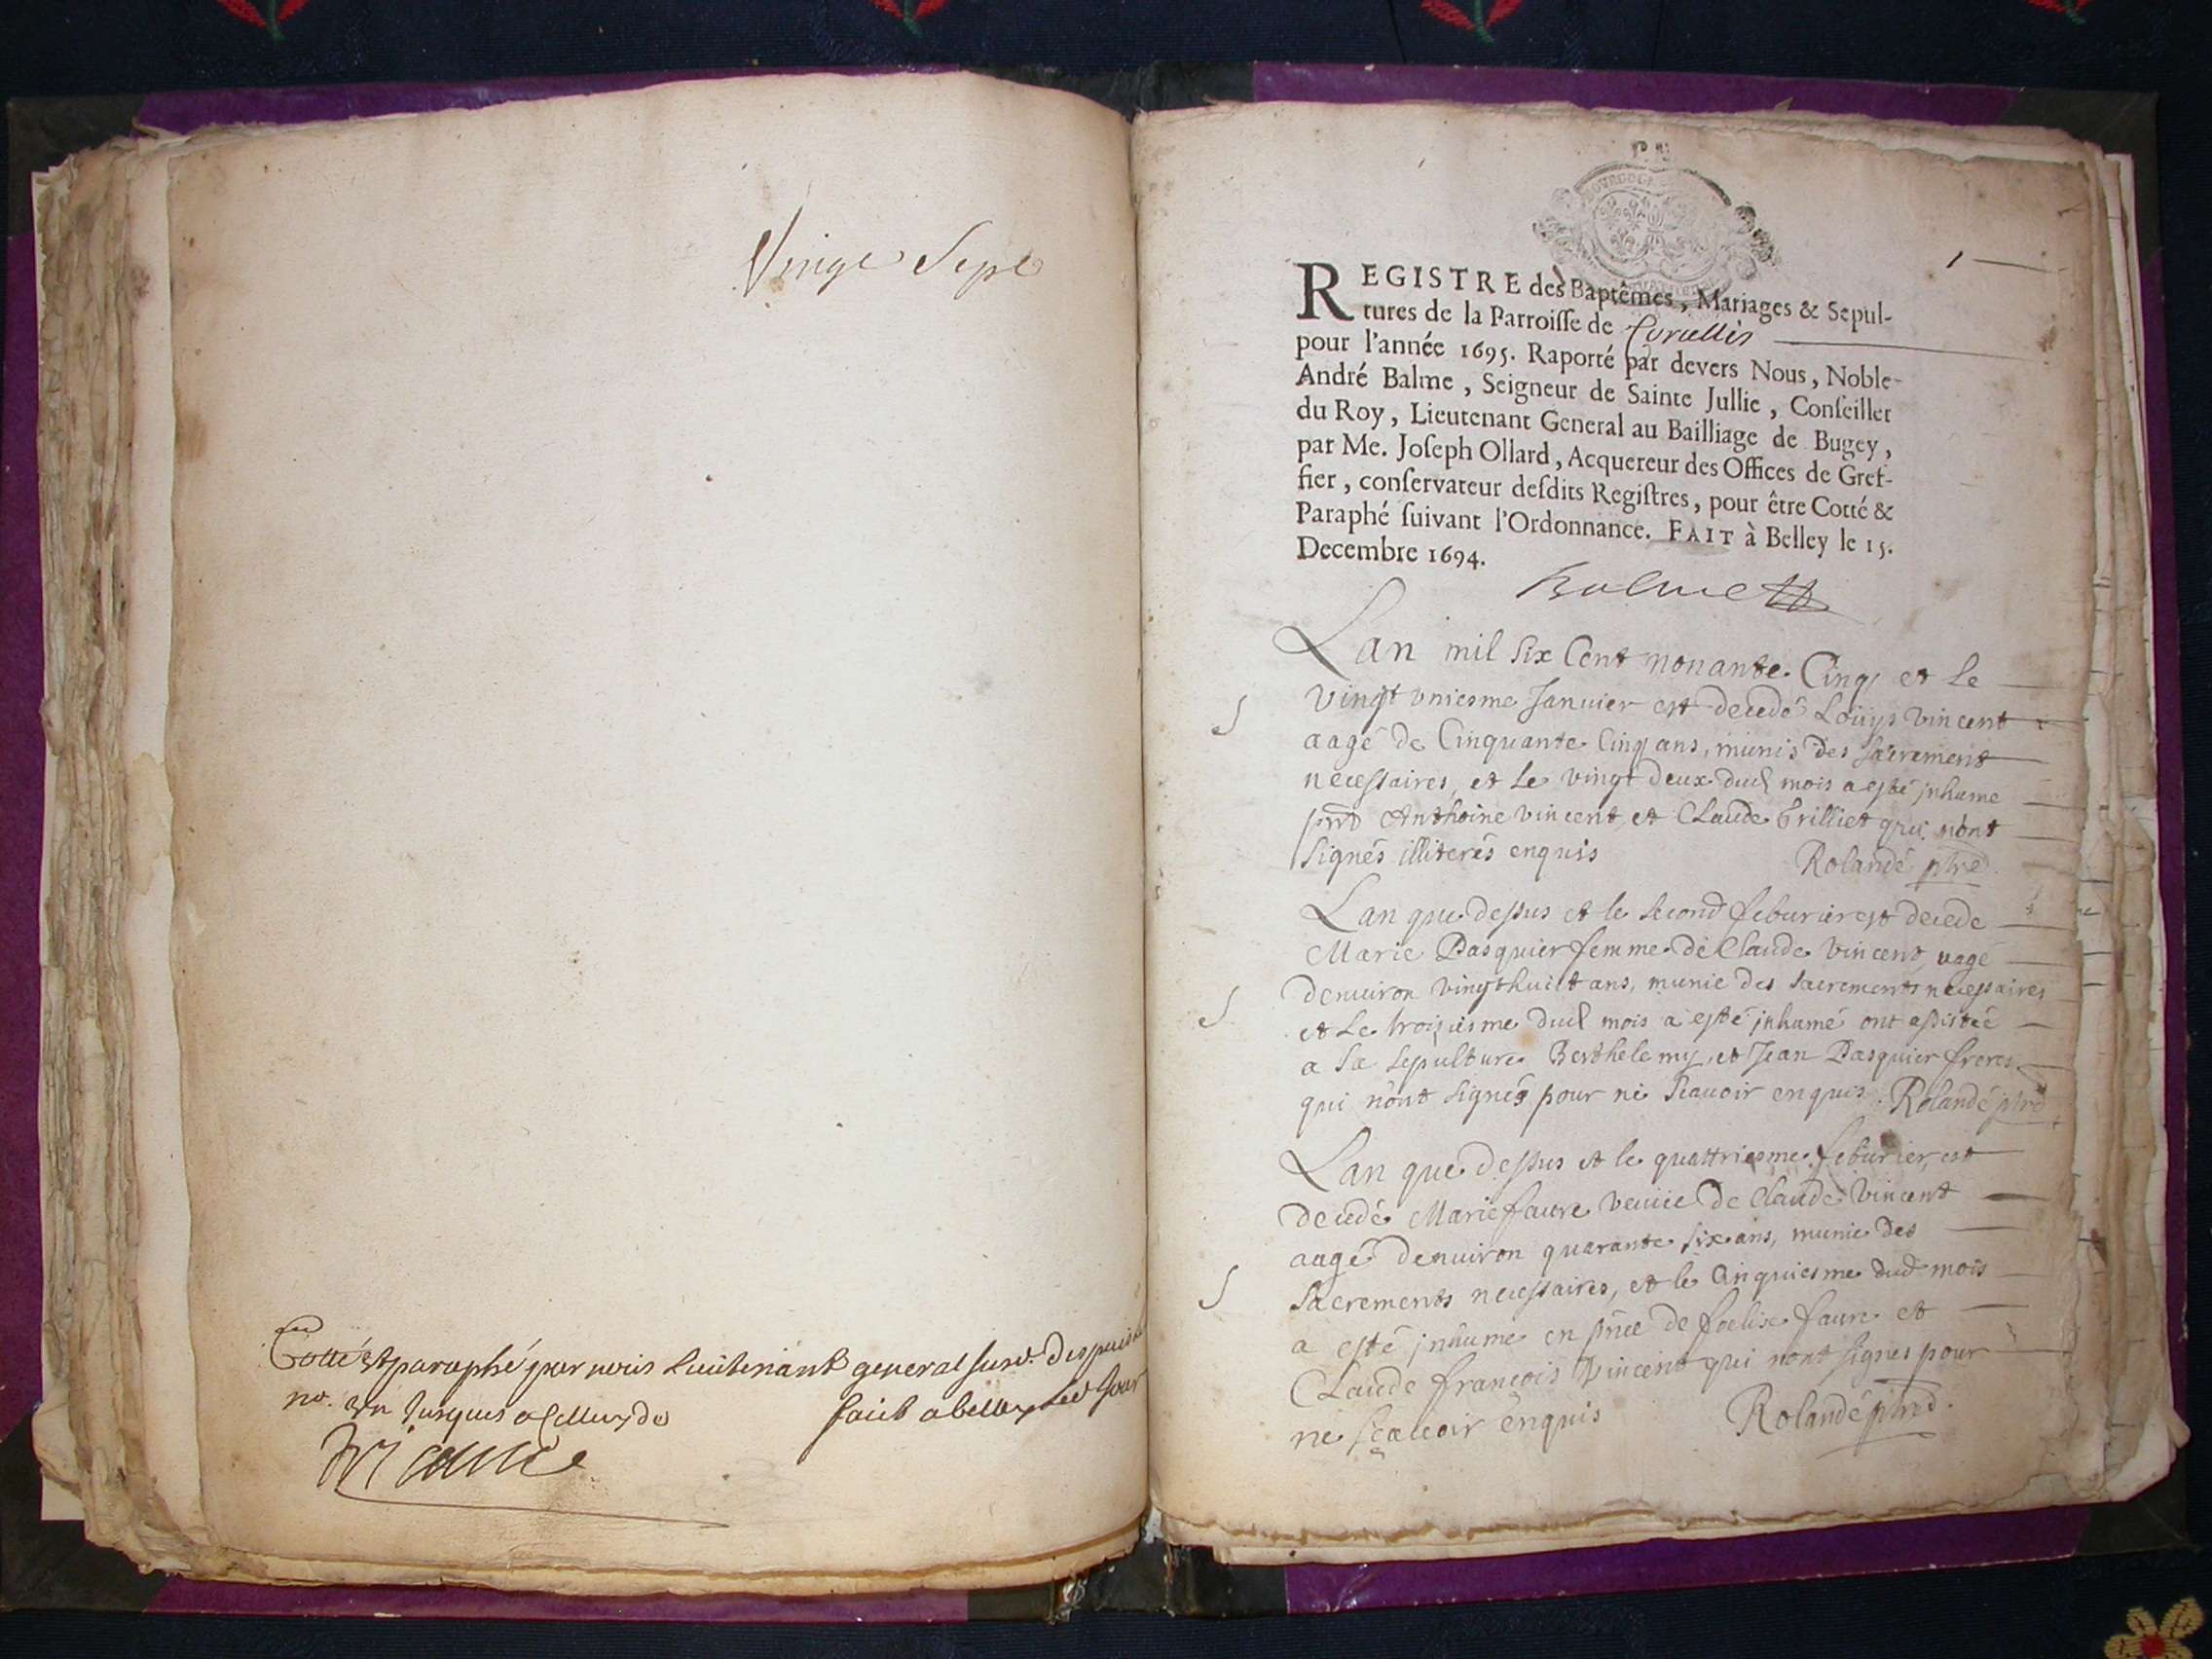 Vingt Sept
Cotté et paraphé par nous Lieutenant general susd. despuis le
no. un jusques a celluy de faict a belley led jour
1
REGISTRE des Baptêmes, Mariages & Sepul-
tures de la Parroisse de
pour l'année 1695. Raporté par devers Nous, Noble-
André Balme, Seigneur de Sainte Jullie, Conseiller
du Roy, Lieutenant General au Bailliage de Bugey,
par Me. Joseph Ollard, Acquereur des Offices de Gref-
fier, conservateur desdits Registres, pour être Cotté &
Paraphé suivant l'Ordonnance. FAIT à Belley le 15.
Decembre 1694.
Balme
Lan mil six Cent nonante Cinq et le
S vingt uniesme Januier est decedé Loüys vincent
aagé de Cinquante Cinq ans, munis des sacrement
necessaires, et le vingt deux dud mois a esté inhume
pnt Anthoine vincent et Claude Trilliet qui nont
signés illiterés enquis Rolandé ptre
Lan que dessus et le second feburier est decede
Marie Pasquier femme de Claude vincent, aagé
S denuiron vingthuict ans, munie des sacrements necessaires
et le troisiesme dud mois a esté inhumé ont assistéé
a sa sepulture Berthelemy et Jean Pasquier freres
qui nont signés pour ne scauoir enquis. Rolandé ptre
Lan que dessus et le quattriesme feburier, est
decedé Marie faure veuue de Claude vincent
aagé denuiron quarante six ans, munie des
S sacrements necessaires, et le Cinquiesme dud mois
a esté inhume en pnce de foelise faure et
Claude francois vincent qui nont signes pour
ne sçauoir enquis Rolandé ptre.